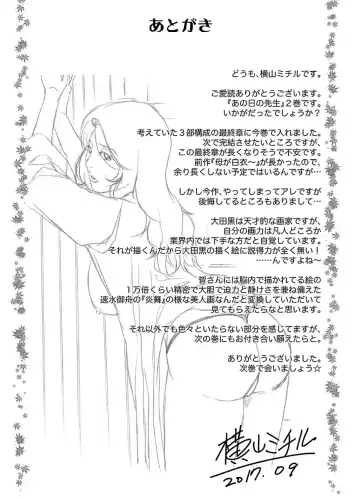 あとがき
どうも、横山ミチルです。
ご愛読ありがとうございます。
『あの日の先生』2巻です。
いかがだったでしょうか？
考えていた3部構成の最終章に今巻で入れました。
次で完結させたいところですが、
この最終章が長くなりそうで不安です。
前作『母が白衣～』が長かったので、
余り長くしない予定ではいるんですが…
しかし今作、やってしまってアレですが
後悔してるところもありまして…
大田黒は天才的な画家ですが、
自分の画力は凡人どころか
業界内では下手な方だと自覚しています。
それが描くんだから大田黒の描く絵に説得力が全く無い！
……んですよね～
皆さんには脳内で描かれてる絵の
1万倍くらい精密で大胆で迫力と静けさを兼ね備えた
速水御舟の『炎舞』の様な美人画なんだと変換していただいて
見てもらえたらなと思います。
それ以外でも色々といたらない部分を感じてますが、
次の巻にもお付き合い願えたらと。
ありがとうございました。
次巻で会いましょう☆
横山ミチル
2017.09